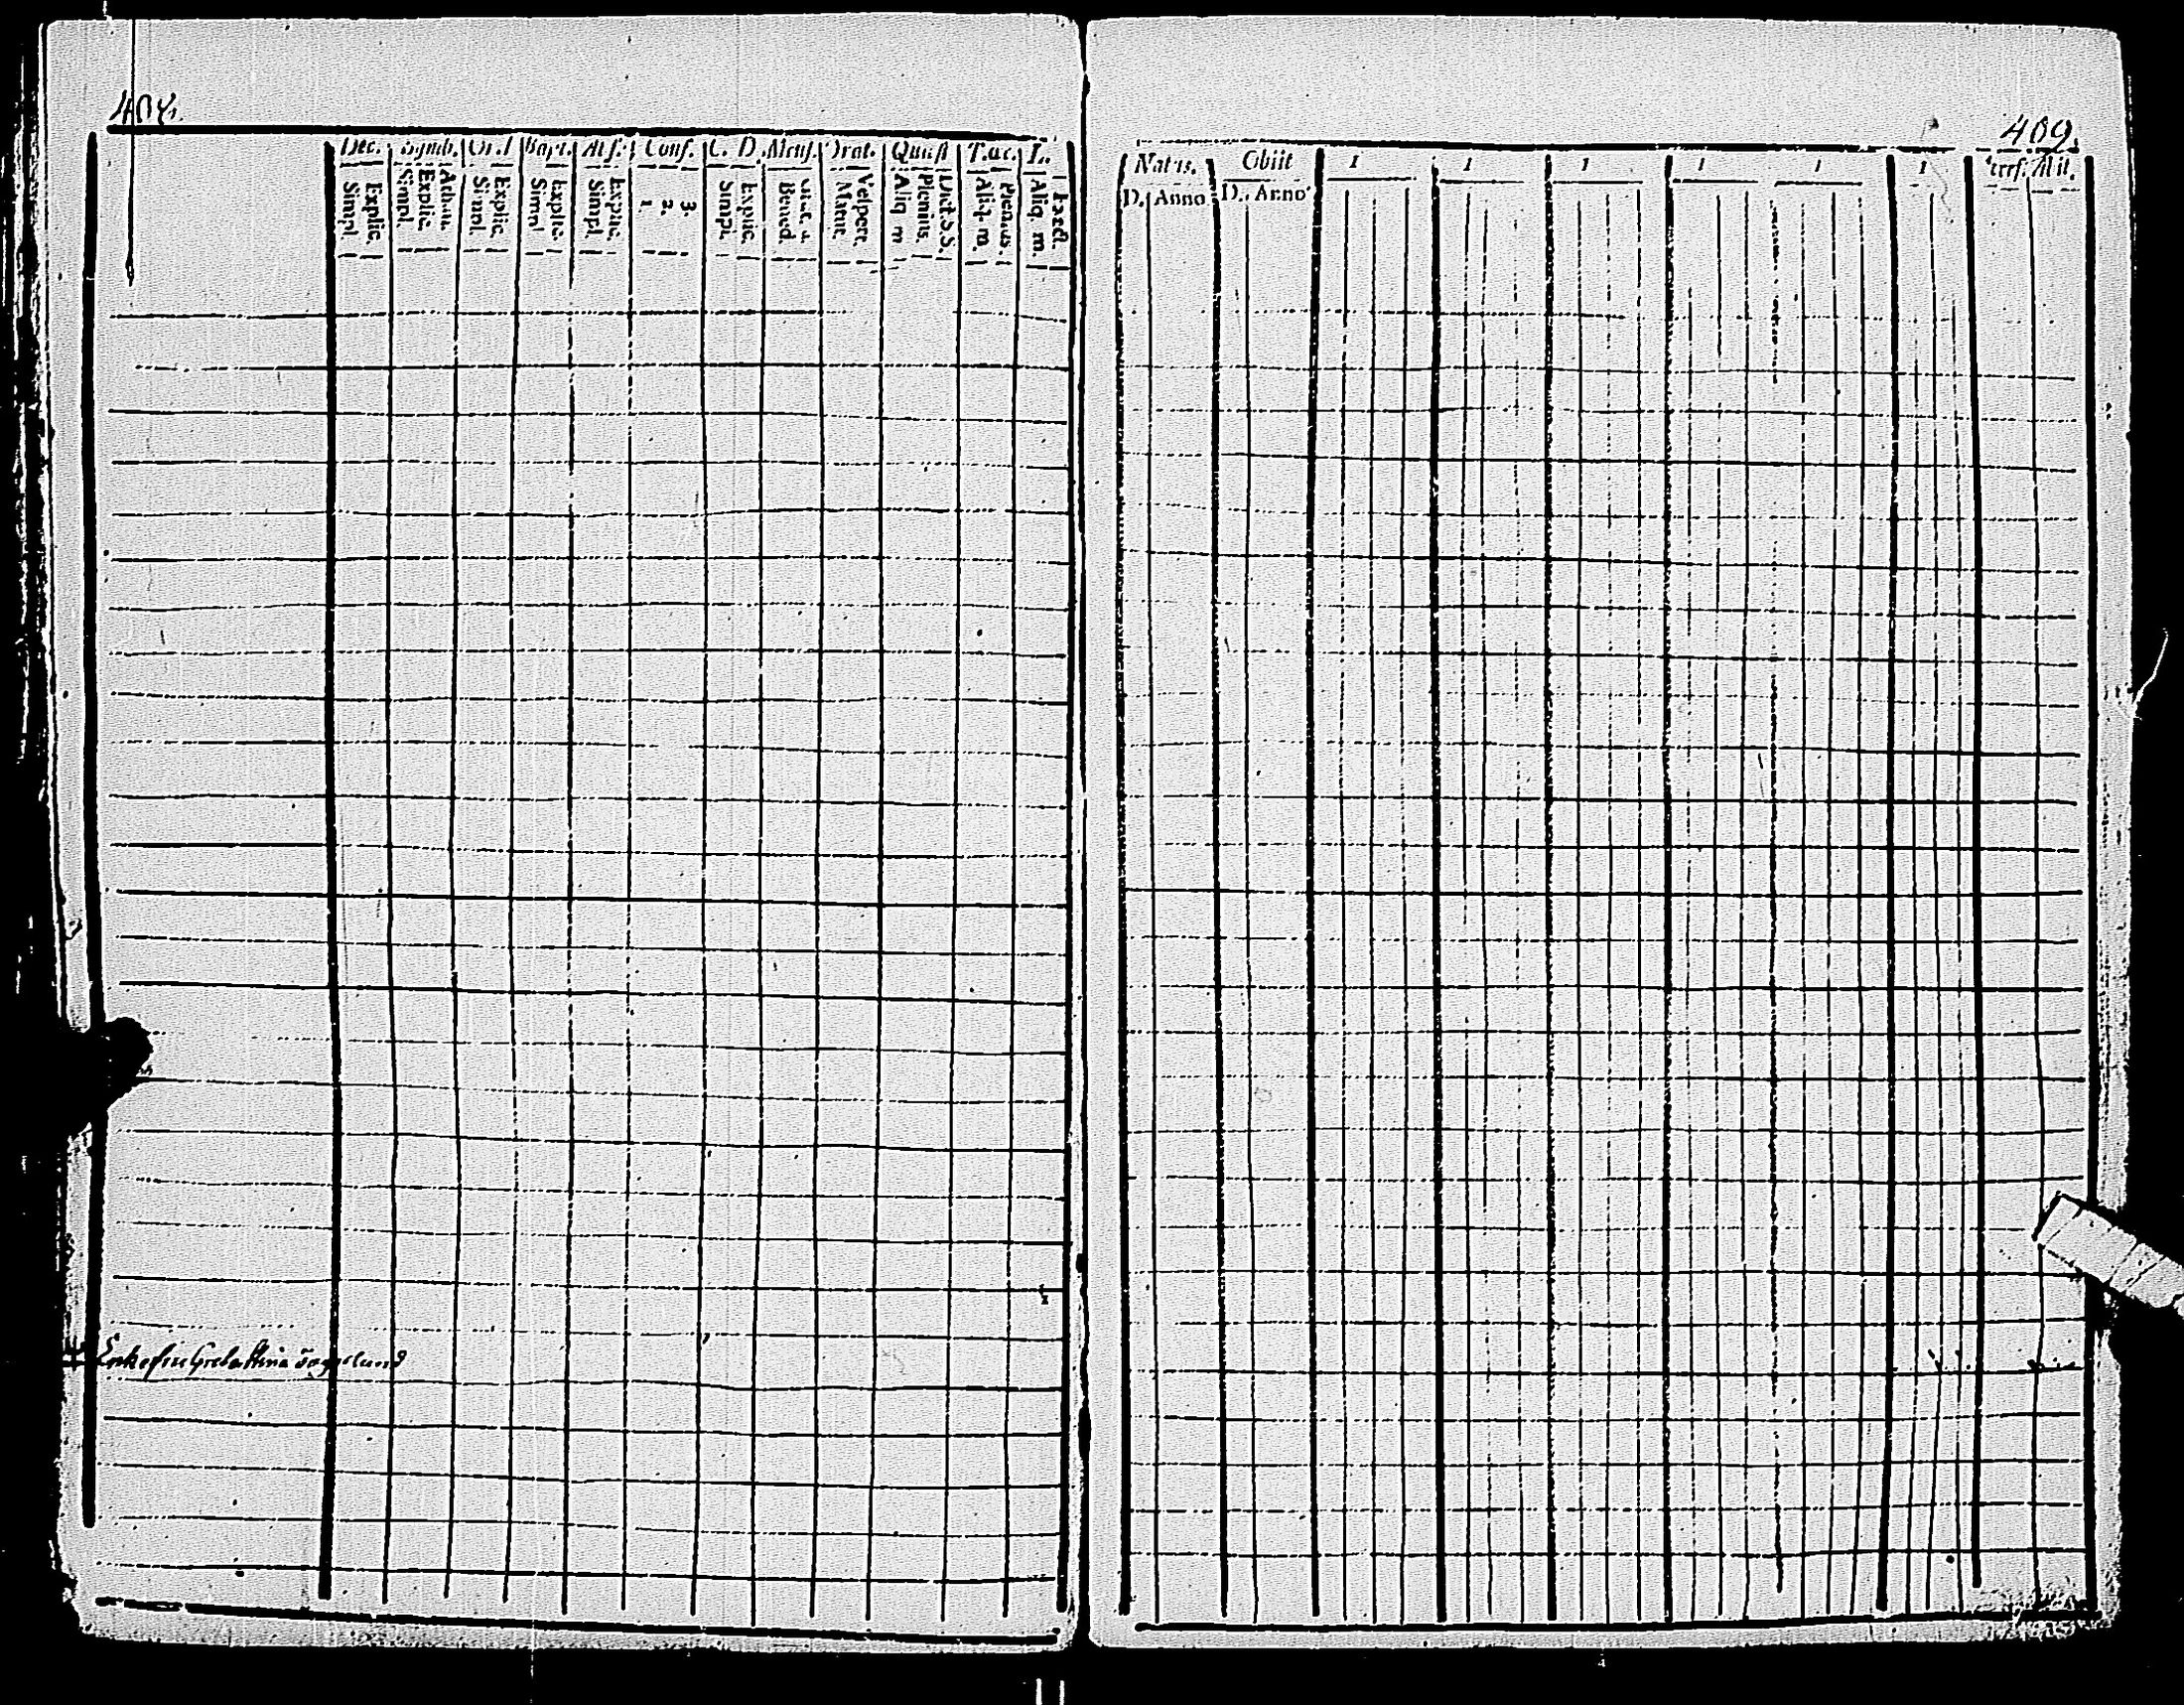 408.
Dec. Symb. Or. D Bapt. Abs. Conf. C. D. Mens. Orat. Quæst T.œc. L.
Explic. Simpl. Athan. Explic. Simpl. Explic. Simpl. Explic. Simpl. Explic. Simpl. 3. 2. 1. Explic. Simpl. Bened. Vespert. Matut. Dict. S. S. Plenius. Aliq. m. Plenius. Aliq. m. Exact. Aliq. m.
409.
Natus. Obiit 1 1 1 1 1 1 Abit.
D. Anno D. Anno